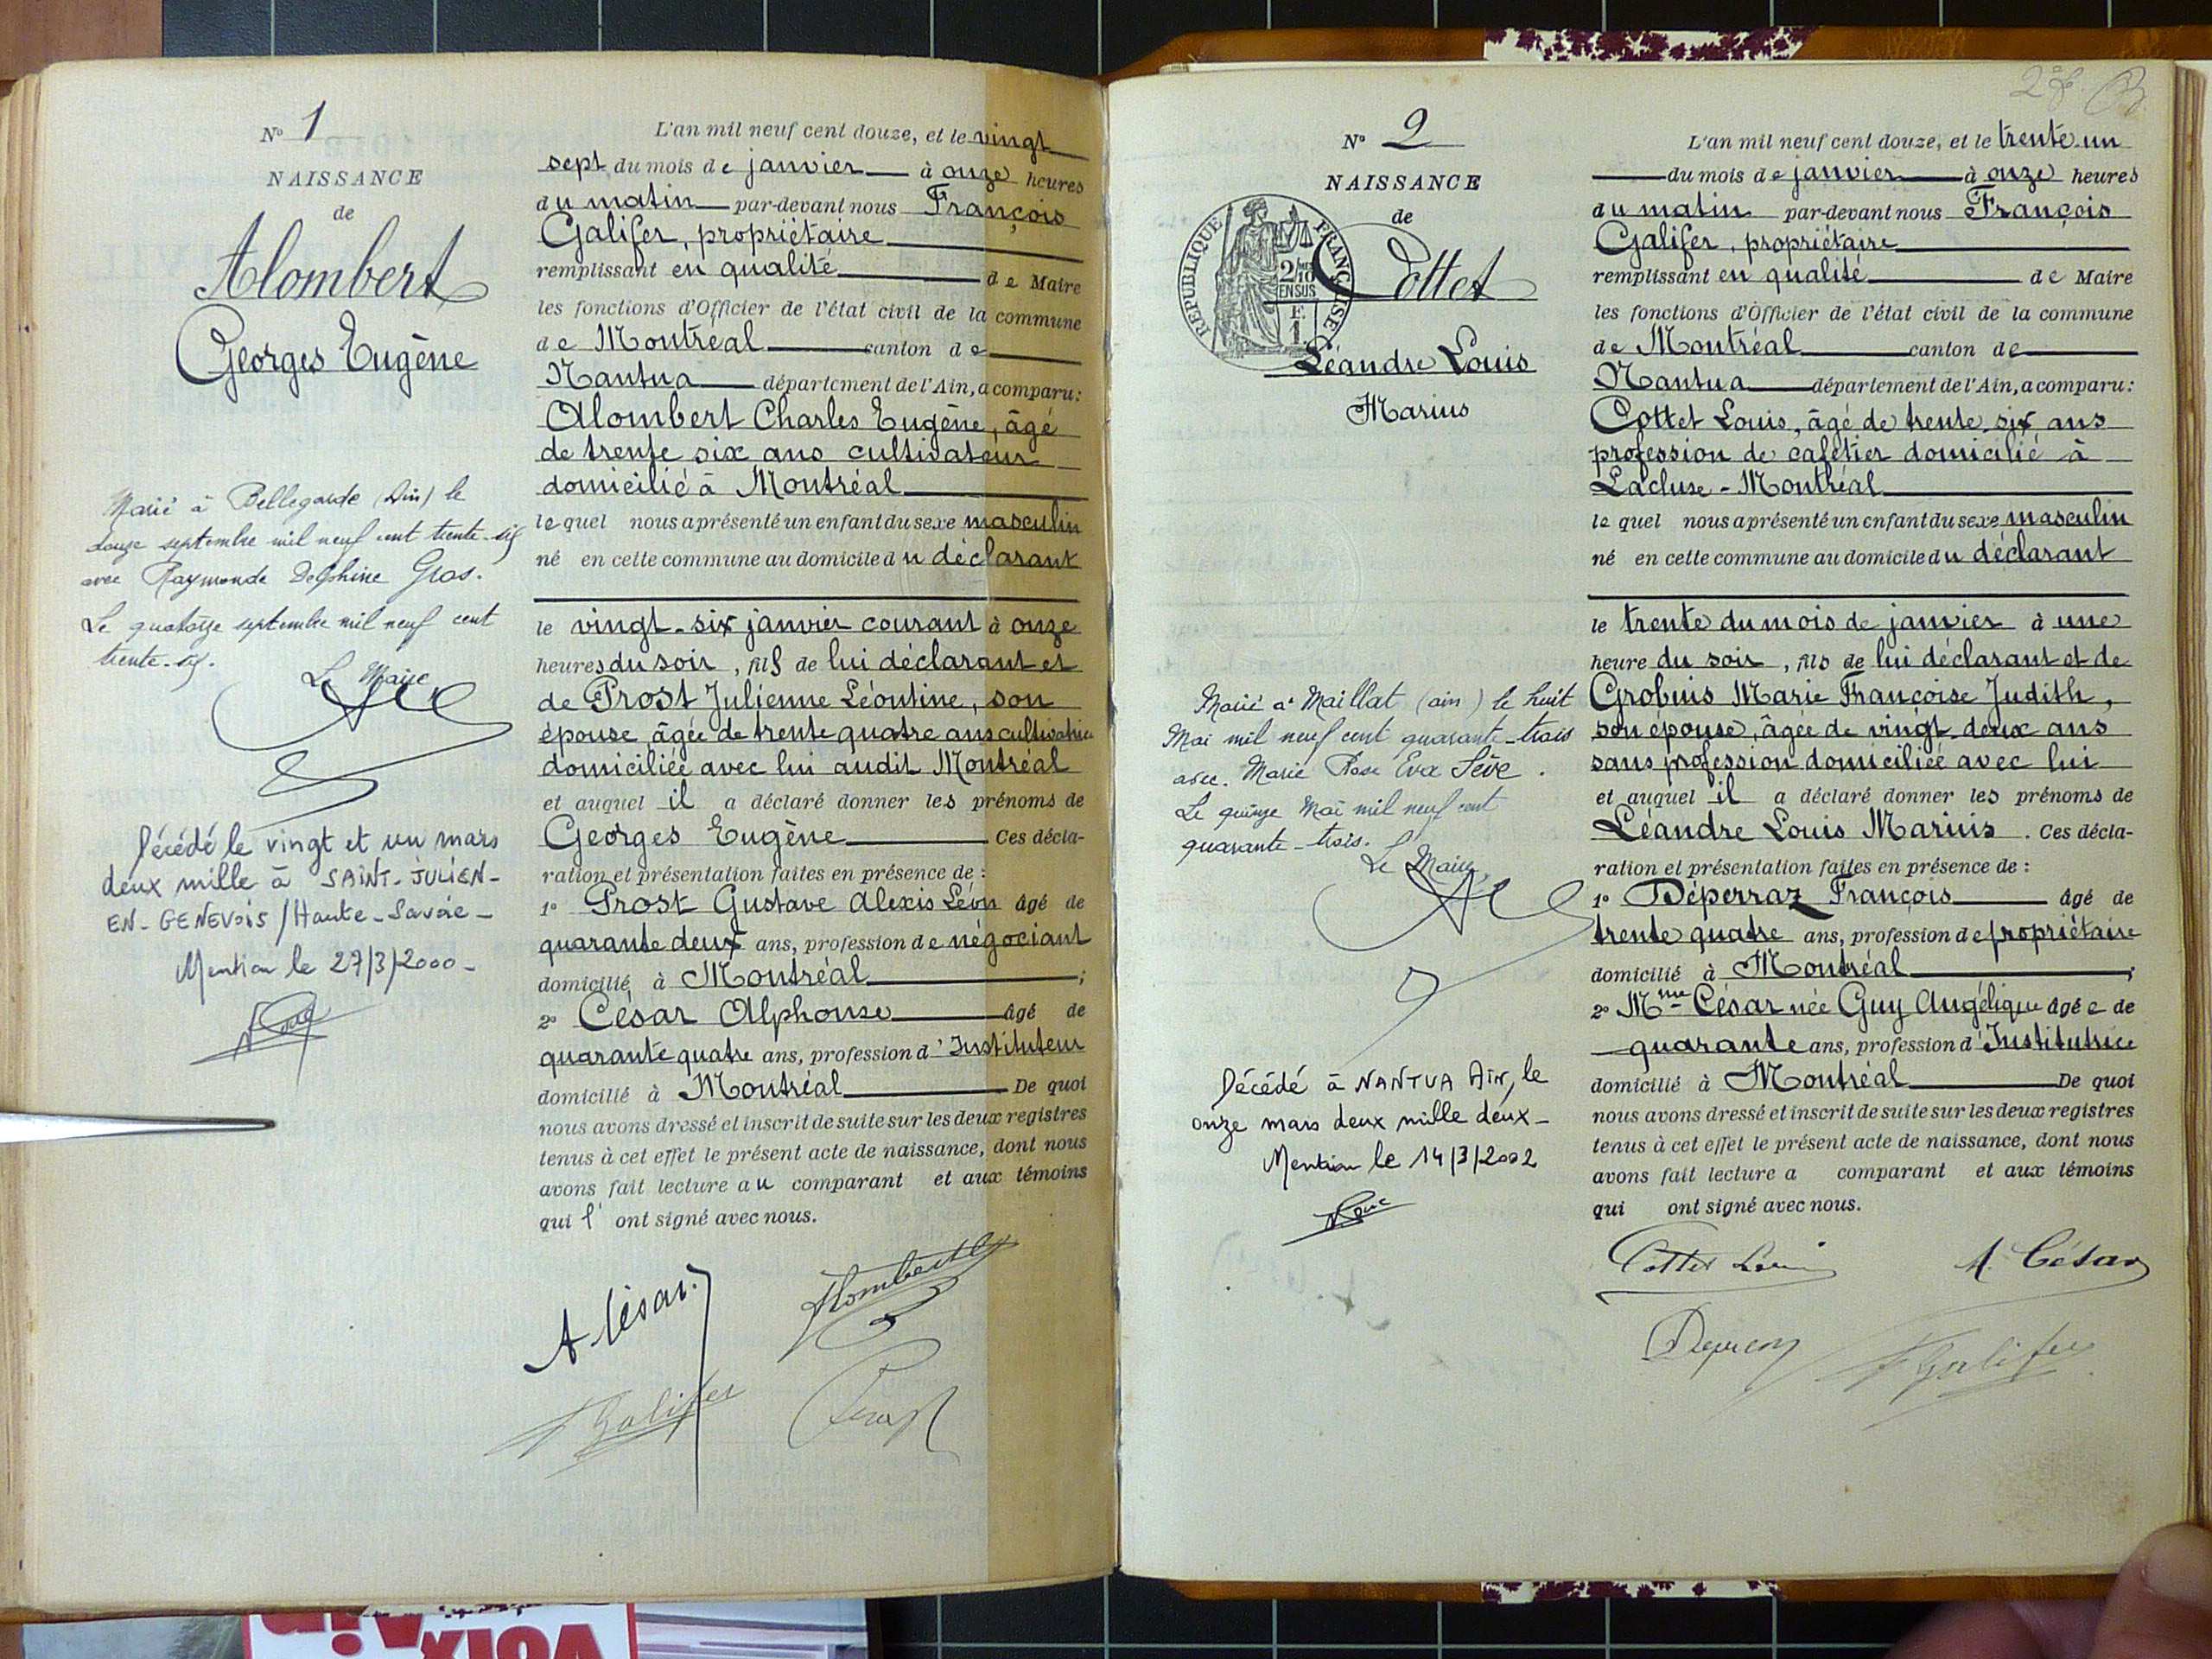 N° 1
NAISSANCE
de
Alombert
Georges Eugène
Marié à Bellegarde (Ain) le
douze septembre mil neuf cent trente-six
avec Raymonde Delphine Gros.
Le quatorze septembre mil neuf cent
trente-six.
Le Maire,
Décédé le vingt et un mars
deux mille à SAINT-JULIEN-
EN-GENEVOIS/Haute-Savoie-
Mention le 27/3/2000-
L'an mil neuf cent douze, et le vingt
sept du mois de janvier à onze heures
du matin par-devant nous François
Galifer, propriétaire
remplissant en qualité de Maire
les fonctions d'Officier de l'état civil de la commune
de Montréal canton de
Nantua département de l'Ain, a comparu:
Alombert Charles Eugène, âgé
de trente six ans cultivateur
domicilié à Montréal
lequel nous a présenté un enfant du sexe masculin
né en cette commune au domicile du déclarant
le vingt-six janvier courant à onze
heures du soir, fils de lui déclarant et
de Prost Julienne Léontine, son
épouse âgée de trente quatre ans cultivatrice
domiciliée avec lui audit Montréal
et auquel il a déclaré donner les prénoms de
Georges Eugène Ces décla-
ration et présentation faites en présence de :
1° Prost Gustave Alexis Léon âgé de
quarante deux ans, profession de négociant
domicilié à Montréal ;
2° César Alphonse âgé de
quarante quatre ans, profession d'Instituteur
domicilié à Montréal De quoi
nous avons dressé et inscrit de suite sur les deux registres
tenus à cet effet le présent acte de naissance, dont nous
avons fait lecture au comparant et aux témoins
qui l'ont signé avec nous.
A César.
Alombert
F Galifer
Prost
N° 2
NAISSANCE
de
REPUBLIQUE FRANÇAISE
2/10
EN SUS
F.
1.
Cottet
Léandre Louis
Marius
Marié à Maillat (ain) le huit
Mai mil neuf cent quarante-trois
avec. Marie Rose Eva Sève.
Le quinze Mai mil neuf cent
quarante-trois.
Le Maire,
Décédé à NANTUA AIN, le
onze mars deux mille deux-
Mention le 14/3/2002
L'an mil neuf cent douze, et le trente-un
du mois de janvier à onze heures
du matin par-devant nous François
Galifer, propriétaire
remplissant en qualité de Maire
les fonctions d'Officier de l'état civil de la commune
de Montréal canton de
Nantua département de l'Ain, a comparu:
Cottet Louis, âgé de trente six ans
profession de cafetier domicilié à
Lacluse-Montréal
lequel nous a présenté un enfant du sexe masculin
né en cette commune au domicile du déclarant
le trente du mois de janvier à une
heure du soir, fils de lui déclarant et de
Grobuis Marie Françoise Judith,
son épouse, âgée de vingt-deux ans
sans profession domiciliée avec lui
et auquel il a déclaré donner les prénoms de
Léandre Louis Marius. Ces décla-
ration et présentation faites en présence de :
1° Déperraz François âgé de
trente quatre ans, profession de propriétaire
domicilié à Montréal ;
2° Mme César née Guy Angélique âgée de
quarante ans, profession d'Institutrice
domicilié à Montréal De quoi
nous avons dressé et inscrit de suite sur les deux registres
tenus à cet effet le présent acte de naissance, dont nous
avons fait lecture a comparant et aux témoins
qui ont signé avec nous.
Cottet Louis
A. César
F Galifer
VOIX